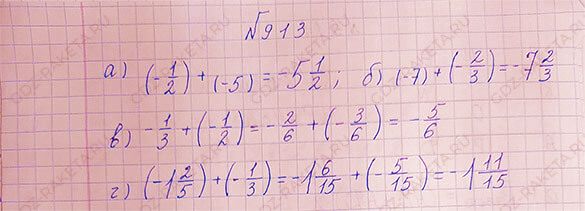 №913
а) (-1/2) + (-5) = -5 1/2; б) (-7) + (-2/3) = -7 2/3
в) -1/3 + (-1/2) = -2/6 + (-3/6) = -5/6
г) (-1 2/5) + (-1/3) = -1 6/15 + (-5/15) = -1 11/15
GDZ-RAKETA.RU